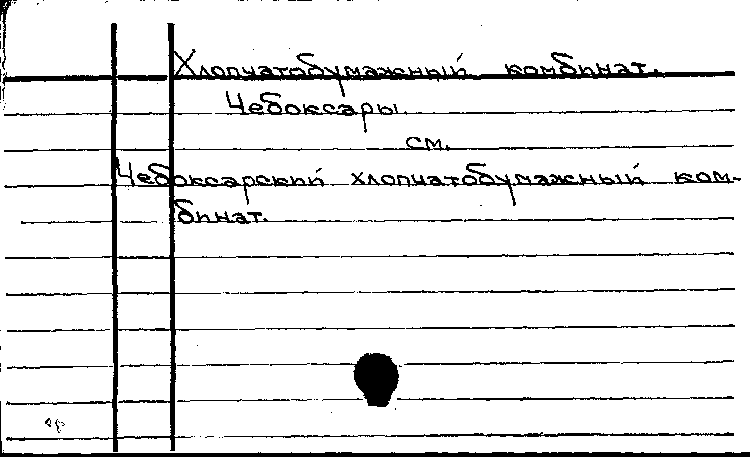 Хлопчатобумажный комбинат.
Чебоксары.
см.
Чебоксарский хлопчатобумажный ком-
бинат.